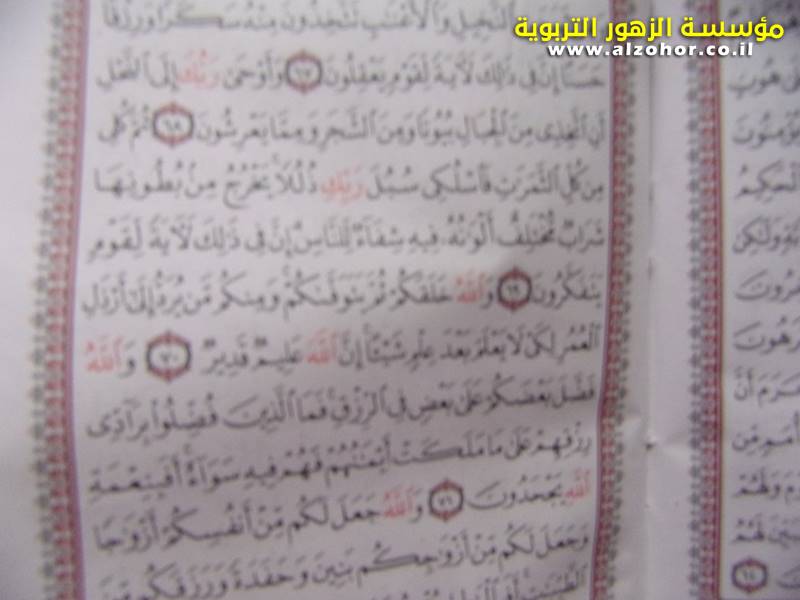 مؤسسة الزهور التربوية
www.alzohor.co.il
النَّخِيلِ وَالْأَعْنَٰبِ تَتَّخِذُونَ مِنْهُ سَكَرًا وَرِزْقًا
حَسَنًا إِنَّ فِي ذَٰلِكَ لَآيَةً لِّقَوْمٍ يَعْقِلُونَ ٦٧ وَأَوْحَىٰ رَبُّكَ إِلَى النَّحْلِ
أَنِ اتَّخِذِي مِنَ الْجِبَالِ بُيُوتًا وَمِنَ الشَّجَرِ وَمِمَّا يَعْرِشُونَ ٦٨ ثُمَّ كُلِي
مِن كُلِّ الثَّمَرَٰتِ فَاسْلُكِي سُبُلَ رَبِّكِ ذُلُلًا يَخْرُجُ مِنْ بُطُونِهَا
شَرَابٌ مُّخْتَلِفٌ أَلْوَٰنُهُ فِيهِ شِفَآءٌ لِّلنَّاسِ إِنَّ فِي ذَٰلِكَ لَآيَةً لِّقَوْمٍ
يَتَفَكَّرُونَ ٦٩ وَاللَّهُ خَلَقَكُمْ ثُمَّ يَتَوَفَّىٰكُمْ وَمِنكُم مَّن يُرَدُّ إِلَىٰ أَرْذَلِ
الْعُمُرِ لِكَيْ لَا يَعْلَمَ بَعْدَ عِلْمٍ شَيْئًا إِنَّ اللَّهَ عَلِيمٌ قَدِيرٌ ٧٠ وَاللَّهُ
فَضَّلَ بَعْضَكُمْ عَلَىٰ بَعْضٍ فِي الرِّزْقِ فَمَا الَّذِينَ فُضِّلُوا بِرَآدِّي
رِزْقِهِمْ عَلَىٰ مَا مَلَكَتْ أَيْمَٰنُهُمْ فَهُمْ فِيهِ سَوَآءٌ أَفَبِنِعْمَةِ
اللَّهِ يَجْحَدُونَ ٧١ وَاللَّهُ جَعَلَ لَكُم مِّنْ أَنفُسِكُمْ أَزْوَٰجًا
وَجَعَلَ لَكُم مِّنْ أَزْوَٰجِكُم بَنِينَ وَحَفَدَةً وَرَزَقَكُم مِّنَ